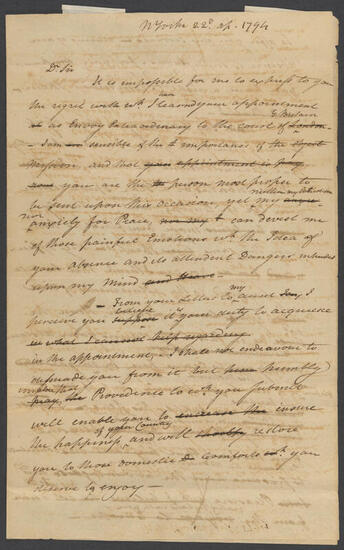 N York 22d. Ap. 1794
Dr. Sir
It is impossible for me to express to you
the regret with wh. I learned your appointment
G Britain
as Envoy Extraordinary to the court of London
I am sensible of the importance of the
Mission and that your appointment
you are the person most proper to
be sent upon this occasion, yet my
nor
anxiety for Peace, can devest me
of those painful Emotions wh. the Idea of
your absence and its attendant Dangers
upon my Mind and
From your Letter to my
believe
perceive you suppose it your duty to acquiesce
in what I cannot help regarding
in the appointment, I shall not endeavour to
disuade you from it but humbly
Providence to wh. you submit
will enable you to encrease the insure
of your Country
the happiness and will restore
you to those domestic Comforts wh. you
deserve to enjoy